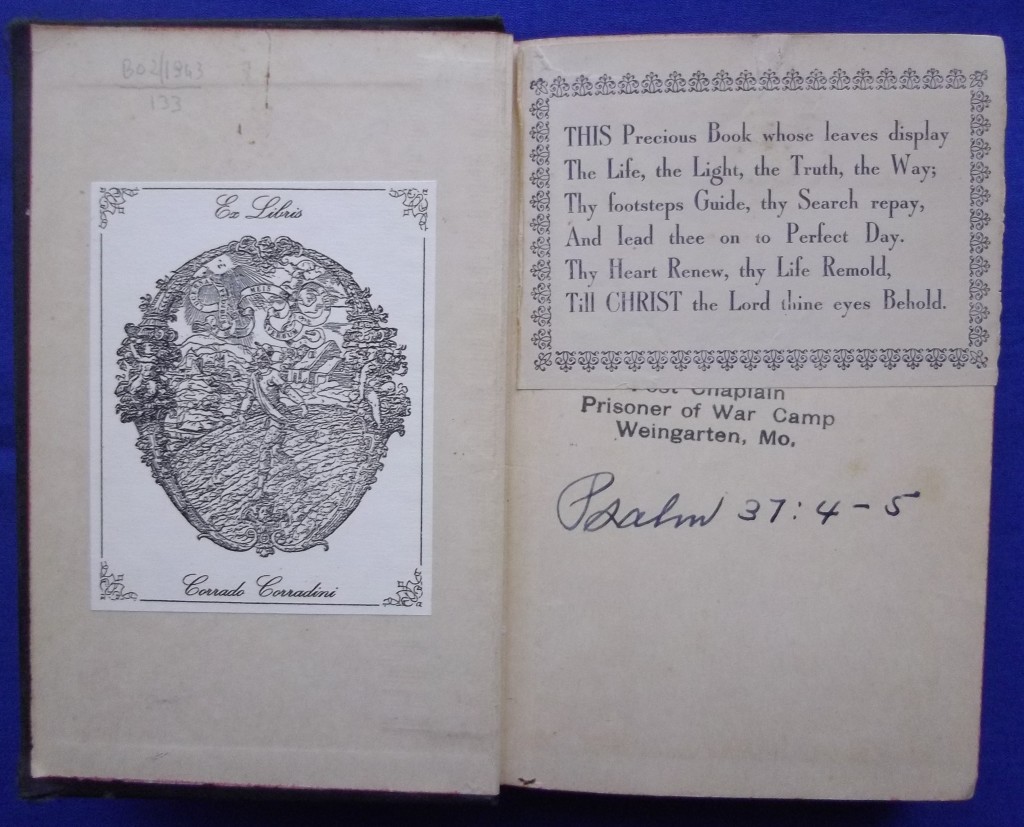 133
Ex Libris
MEIS
Corrado Corradini
THIS Precious Book whose leaves display
The Life, the Light, the Truth, the Way;
Thy footsteps Guide, thy Search repay,
And lead thee on to Perfect Day.
Thy Heart Renew, thy Life Remold,
Till CHRIST the Lord thine eyes Behold.
Post Chaplain
Prisoner of War Camp
Weingarten, Mo.
Psalm 37:4-5